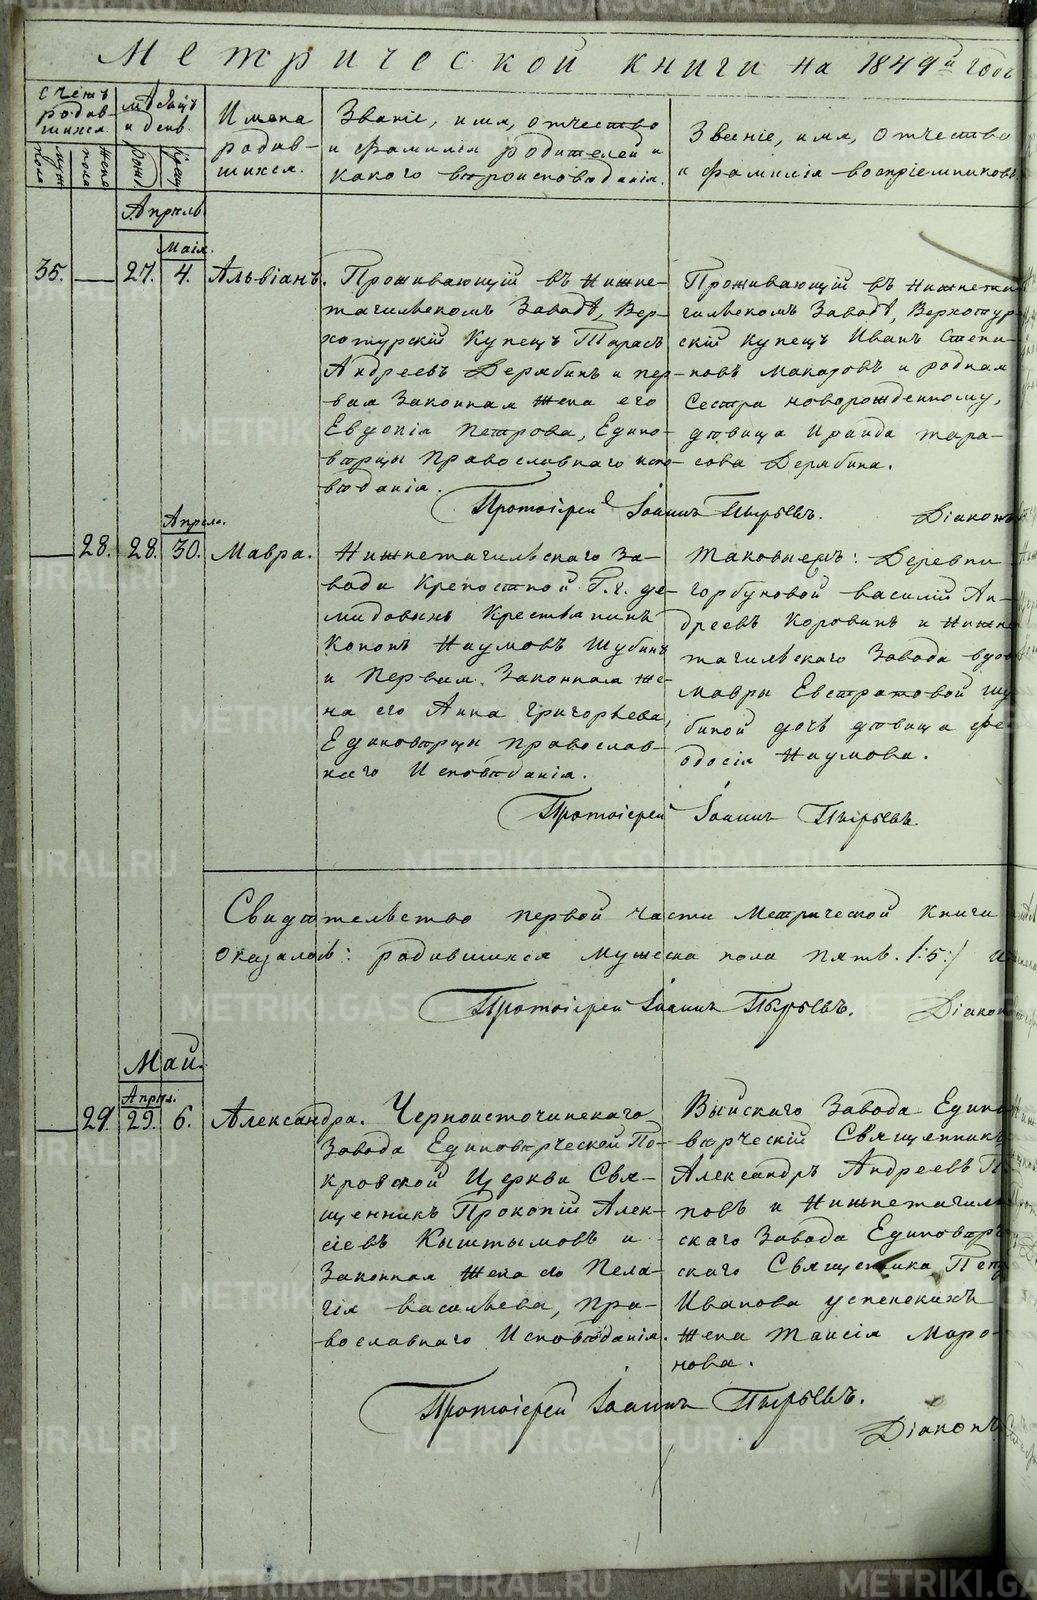 Метрической книги на 1849й годъ
Счетъ родив-
шихся.
муж. пола
жен. пола
Мѣсяцъ
и день.
рожд.
крещ.
Имена
родив-
шихся.
Званіе, имя, отчество
и фамилія родителей и
какого вѣроисповѣданія.
Званіе, имя, отчество
и фамилія воспріемниковъ.
Апрель
Маія.
35. — 27. 4. Альвіанъ.
Проживающій въ Нижне-
тагильскомъ Заводѣ, Вер-
хотурскій Купецъ Тарасъ
Андреевъ Дерябинъ и пер-
вая Законная жена его
Евдокія Петрова, Едино-
вѣрцы Православнаго испо-
вѣданія.
Проживающій въ Нижнета-
гильскомъ Заводѣ, Верхотур-
скій купецъ Иванъ Степа-
новъ Макаровъ и родная
Сестра новорожденному,
дѣвица Ираида Тара-
сова Дерябина.
Протоіерей Іоаннъ Пырьевъ. Діаконъ
Апреля.
— 28. 28. 30. Мавра.
Нижнетагильскаго За-
вода Крепостной Г.г. Де-
мидовыхъ Крестьянинъ
Кононъ Наумовъ Шубинъ
и Первая Законная же-
на его Анна Григорьева,
Единовѣрцы православ-
наго Исповѣданія.
Таковыемъ: Деревни
Горбуновой Василій Ан-
дреевъ Коровинъ и Нижне-
тагильскаго Завода вдовы
Мавры Евстратовой Шу-
биной дочь дѣвица Фе-
одосія Наумова.
Протоіерей Іоаннъ Пырьевъ.
Свидѣтельство первой части Метрической Книги
оказалось: родившихся мужеска пола пять. /:5:/ и
Протоіерей Іоаннъ Пырьевъ. Діакон
Май.
Апрел.
— 29. 29. 6. Александра.
Черноисточинскаго
Завода Единовѣрческой По-
кровской Церкви Свя-
щенникъ Прокопій Алек-
сіевъ Кыштымовъ и
Законная жена его Пела-
гія Васильева, пра-
вославнаго Исповѣданія.
Выйскаго Завода Едино-
вѣрческій Священникъ
Александръ Андреевъ По-
повъ и Нижнетагиль-
скаго Завода Единовѣрче-
скаго Священника Петра
Иванова Успенскихъ
жена Таисія Миро-
нова.
Протоіерей Іоаннъ Пырьевъ.
Діаконъ
METRIKI.GASO-URAL.RU